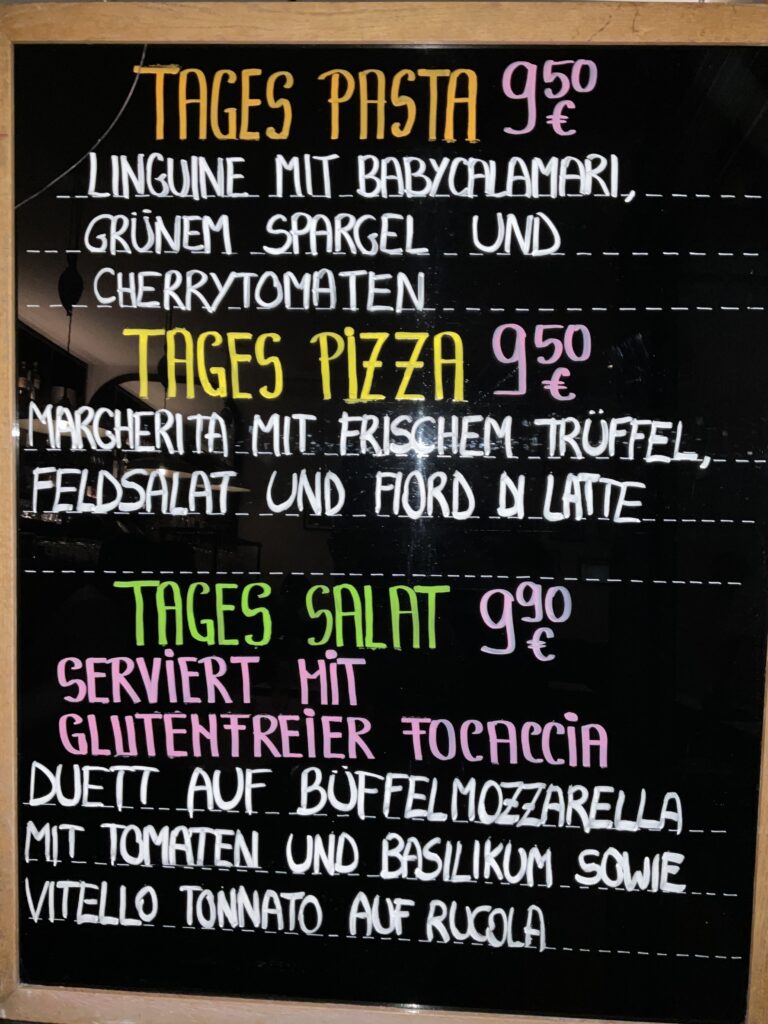 TAGES PASTA 9⁵⁰ €
LINGUINE MIT BABYCALAMARI,
GRÜNEM SPARGEL UND
CHERRYTOMATEN
TAGES PIZZA 9⁵⁰ €
MARGHERITA MIT FRISCHEM TRÜFFEL,
FELDSALAT UND FIORD DI LATTE
TAGES SALAT 9⁹⁰ €
SERVIERT MIT
GLUTENFREIER FOCACCIA
DUETT AUF BÜFFELMOZZARELLA
MIT TOMATEN UND BASILIKUM SOWIE
VITELLO TONNATO AUF RUCOLA